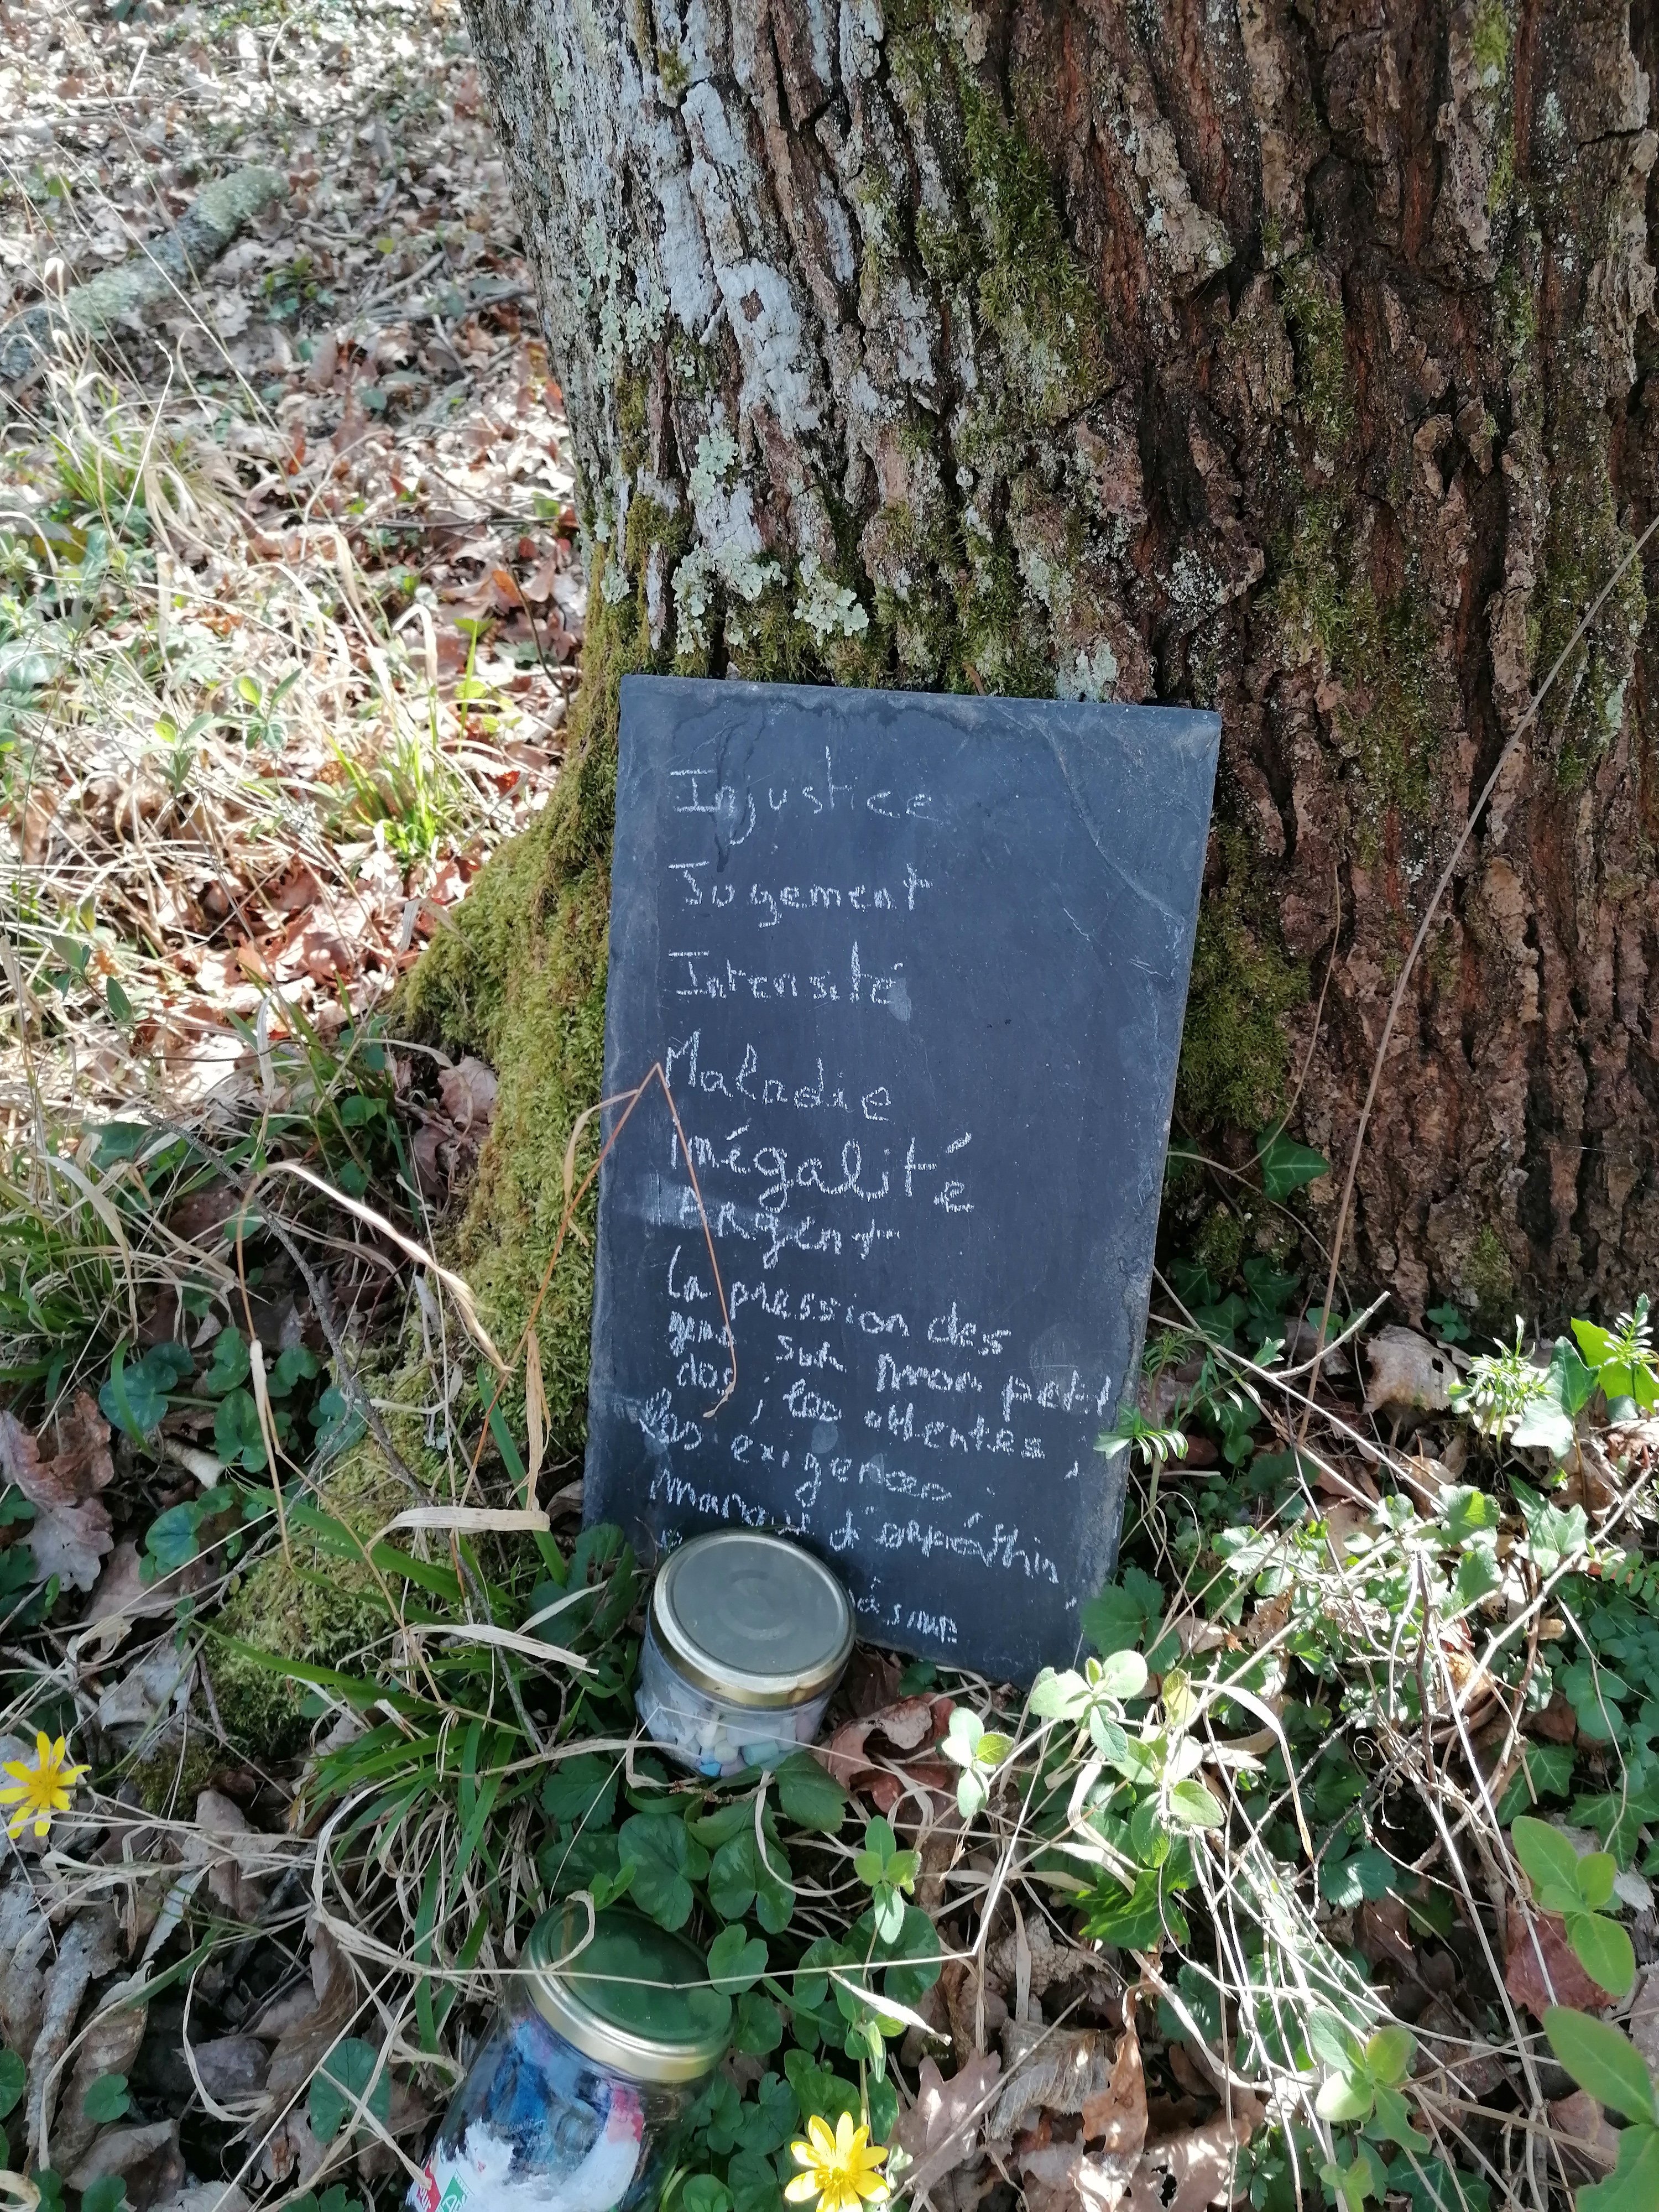 Injustice
Jugement
Intensité
Maladie
Inégalité
ARgent
la pression des
gens sur mon petit
dos ; les attentes
les exigences
manque d'empathin